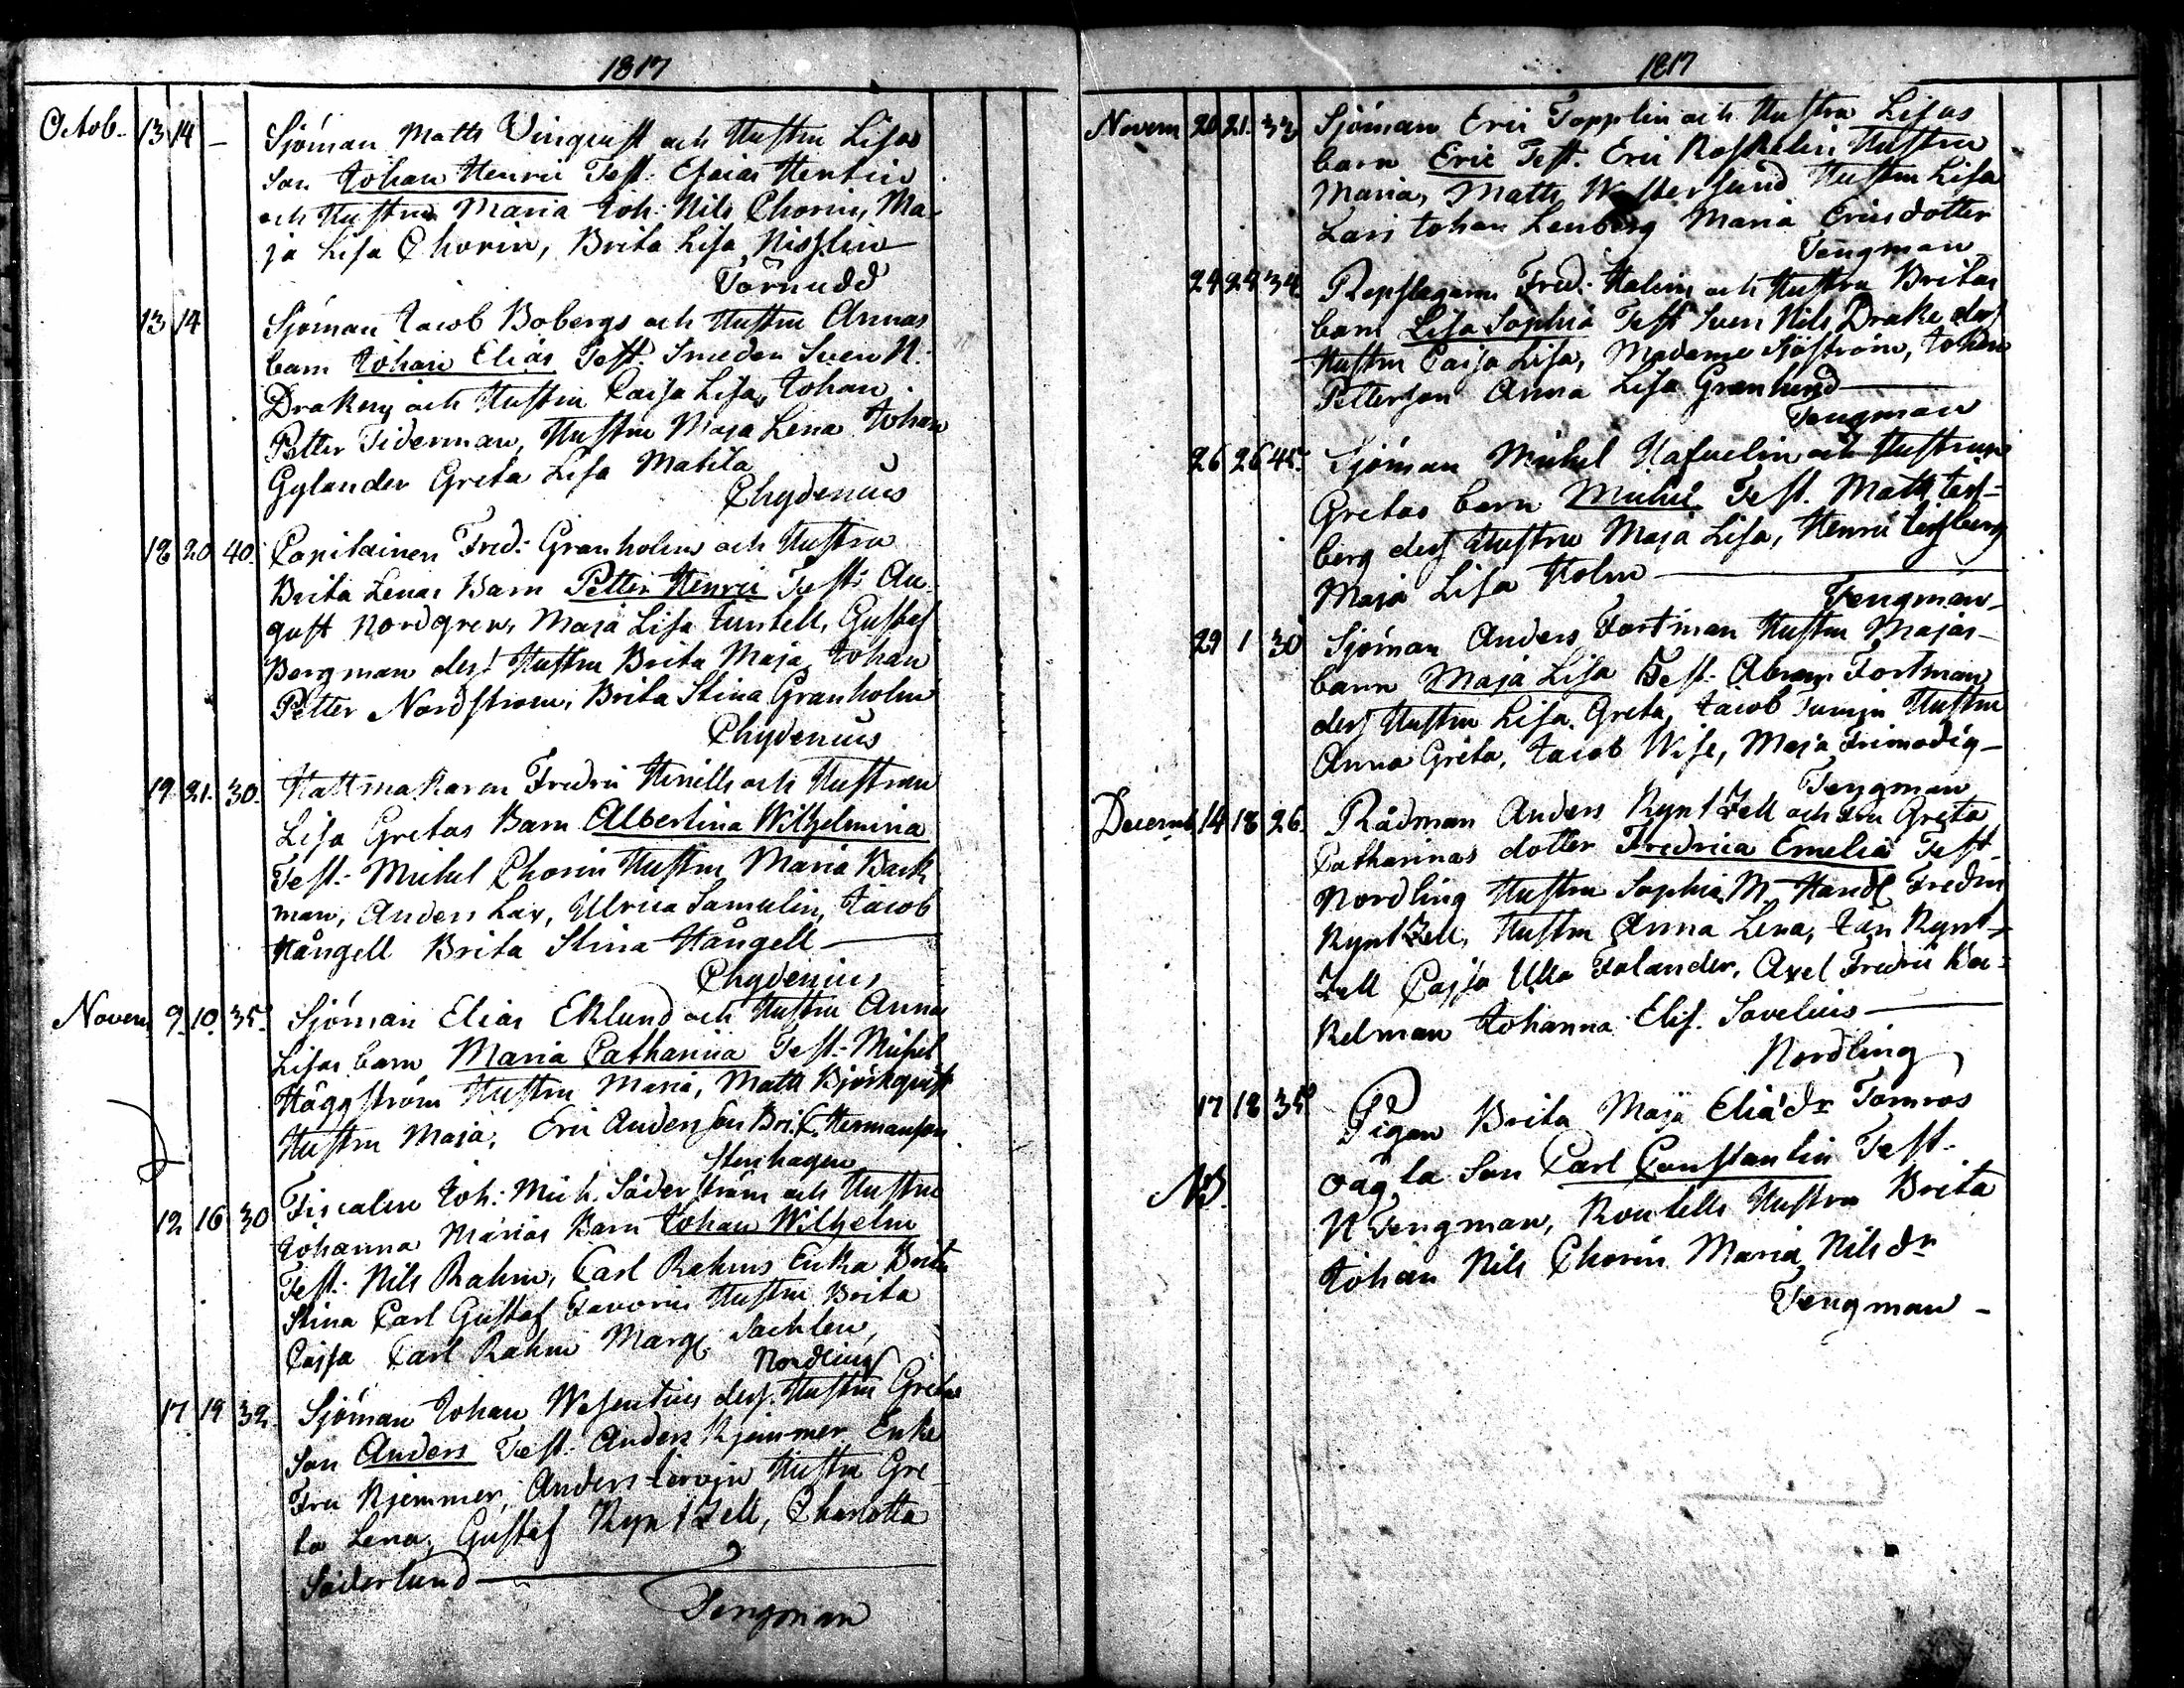 1817
Octob. 13 14 - Sjöman Matts Vinqvist och Hustru Lisas
son Johan Henric Test: Esaias Hentin
och Hustru Maria Joh: Nils Chorin, Ma-
ja Lisa Chorin, Brita Lisa Nisslin
Törnudd
13 14 Sjöman Jacob Bobergs och Hustru Annas
barn Johan Elias Test. Smeden Sven N:
Drakeny och Hustru Caisa Lisa, Johan
Petter Tiderman, Hustru Maja Lena Johan
Gylander Greta Lisa Matila
Chydenius
18 20 40. Fred: Granholms och Hustru
Brita Lenas Barn Petter Henric Test: Au-
gust Nordgren, Maja Lisa Juntell, Gustaf
Bergman dess Hustru Brita Maja, Johan
Petter Nordstrom, Brita Stina Granholm
Chydenius
19 21. 30. Hattmakaren Fredric Henills och Hustru
Lisa Gretas Barn Albertina Wilhelmina
Test: Michel Chorin Hustru Maria Back
man, Anders Lax, Ulrica Samulin, Jacob
Hångell Brita Stina Hångell
Chydenius
Novem 9. 10. 35. Sjöman Elias Eklund och Hustru Anna
Lisas barn Maria Catharina Test: Michel
Häggström Hustru Maria, Matts Björkqvist
Hustru Maja, Eric Andersson Bri. C. Hermanson
Stenhagen
12 16 30 Fiscalen Joh: Mich. Söderström och Hustru
Johanna Marias Barn Johan Wilhelm
Test: Nils Rahm, Carl Rahms Enka Brita
Stina Carl Gustaf Favorin Hustru Brita
Cajsa Carl Rahm Marg: Sachlen,
Nordling
17 19 32. Sjöman Johan Wesentius dess Hustru Gretas
Son Anders Test: Anders Kjemmer Enke
Fru Kjemmer, Anders Hustru Gre-
ta Lena, Gustaf Kyntzell, Charlotta
Söderlund
Tengman
1817
Novem 20 21. 33 Sjöman Eric Topplin och Hustru Lisas
barn Eric Test. Eric Roskelin Hustru
Maria, Matts Westerlund Hustru Lisa
Lars Johan Lenberg Maria Ericsdotter
Tengman
24 24 34 Repslagare Fred: Halin och Hustru Britas
barn Lisa Sophia Test Sven Nils Drake dess
Hustru Caisa Lisa, Madame Sjöström, Johan
Petterson Anna Lisa Granlund
Tengman
26 26 45. Sjöman Michel och Hustrun
Gretas barn Michel Test. Matts
berg dess Hustru Maja Lisa, Henric
Maja Lisa Holm
Tengman
29 1 30 Sjöman Anders Fortman Hustru Majas
barn Maja Lisa Test. Abram Fortman
dess Hustru Lisa Greta, Jacob Hustru
Anna Greta, Jacob Wise, Maja Frimodig
Tengman
Decemb 14 18 26. Rådman Anders Kyntzell och Fru Greta
Catharinas dotter Fredrica Emelia Test
Nordling Hustru Sophia M. Handl Fredric
Kyntzell, Hustru Anna Lena, Kynt-
zell Cajsa Ulla Falander, Axel Fredric
kelman Johanna Elis. Savelius
Nordling
17 18 35 Pigan Brita Maja Elia'dr Tomros
NB. oägta Son Carl Constantin Test.
N Tengman, Rontells Hustru Brita
Johan Nils Chorin Maria Nilsdr
Tengman